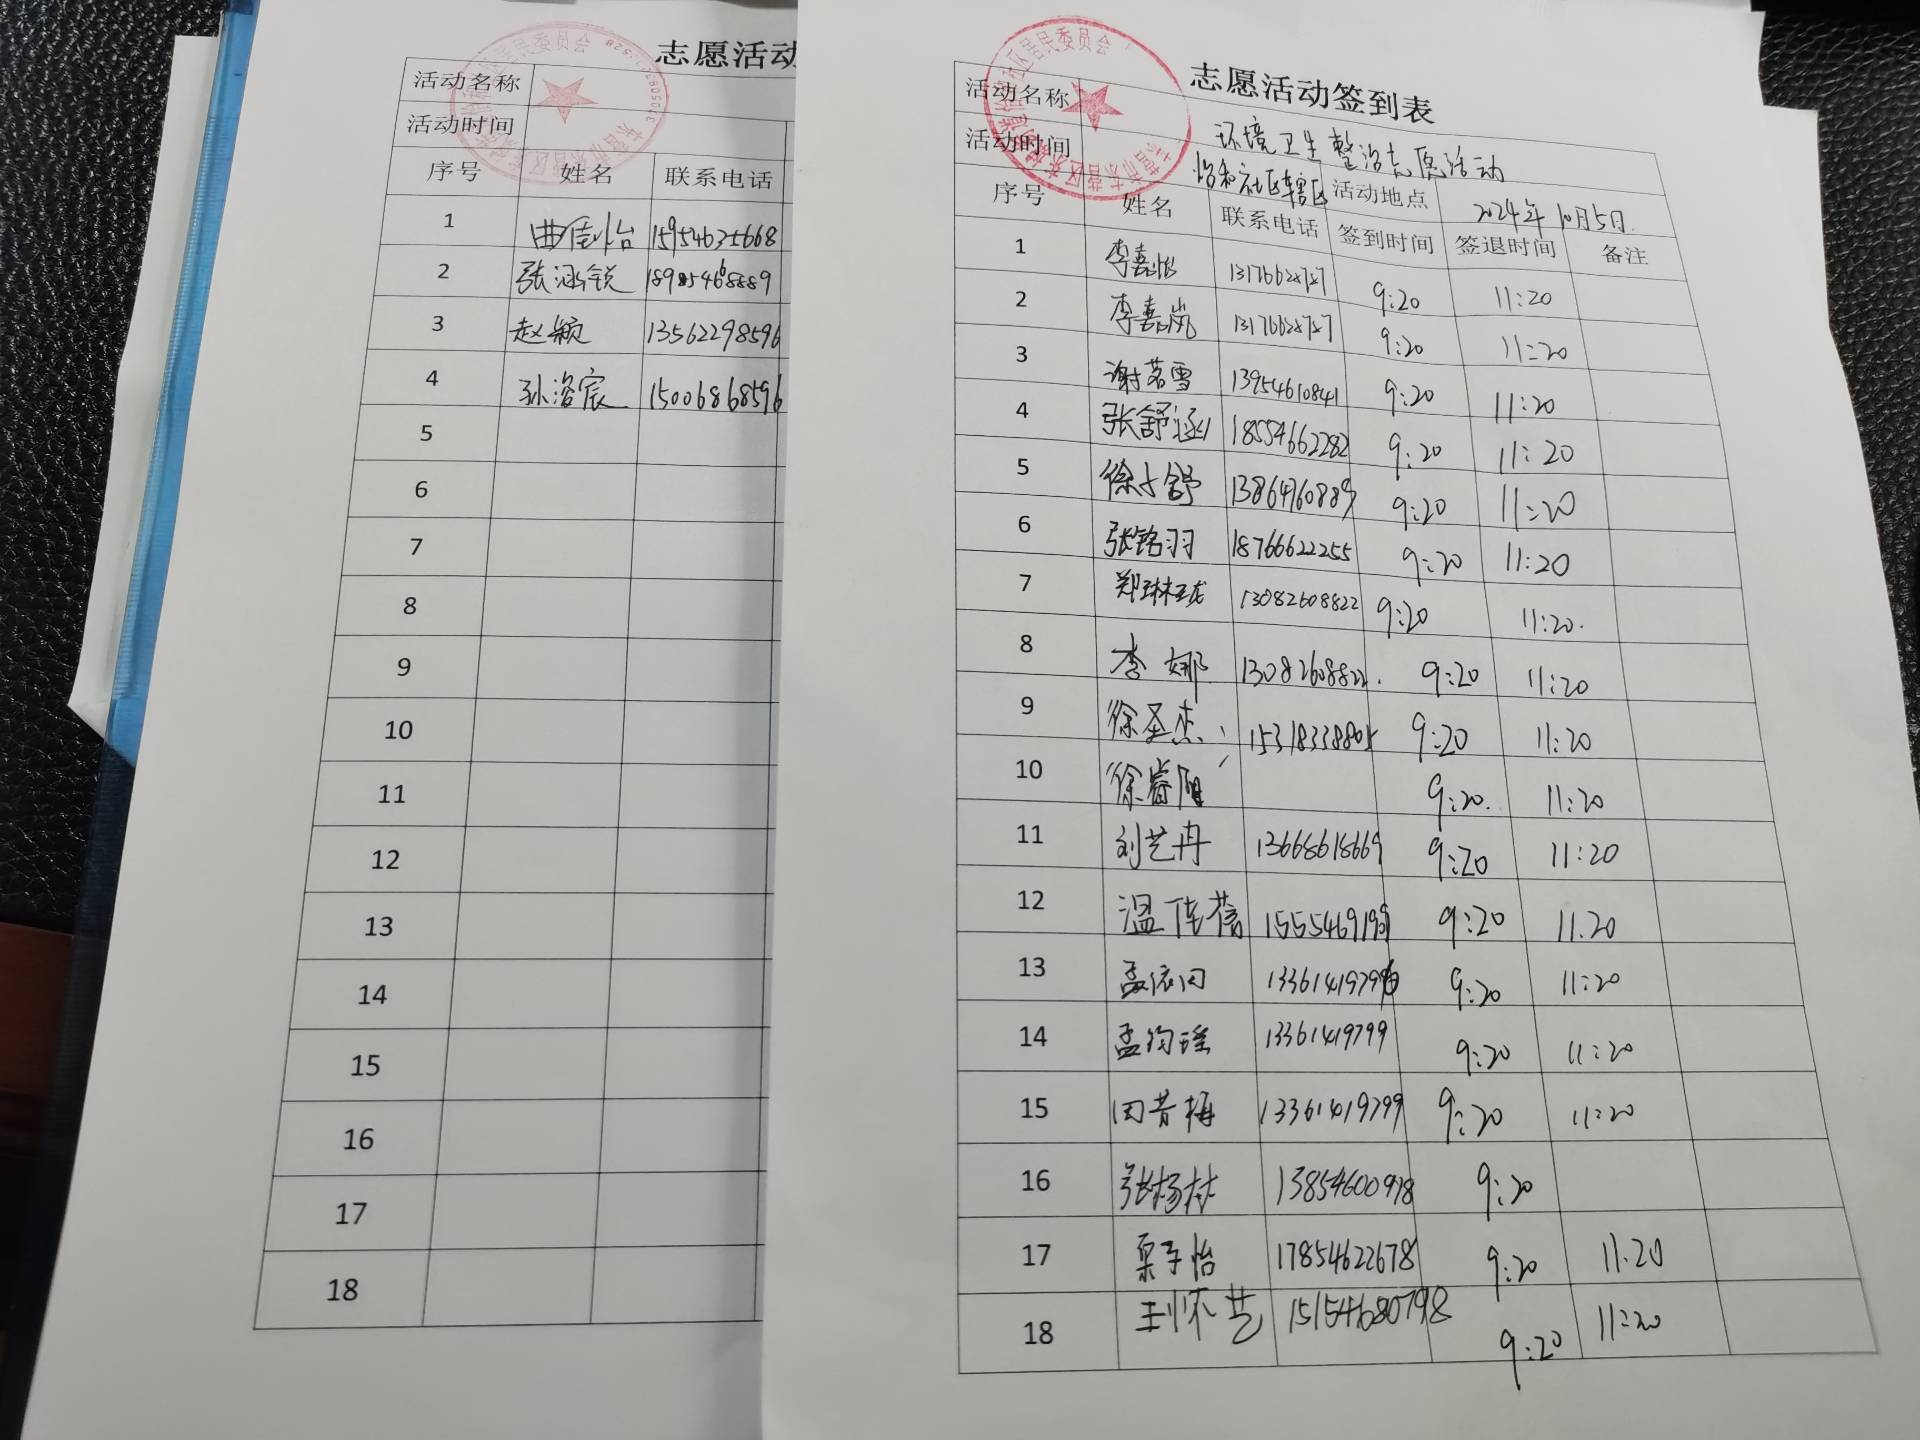 志愿活动
活动名称
活动时间
序号 姓名 联系电话
1 曲佳怡 15954635668
2 张涵锐
3 赵颖 13562298596
4 孙浴宸 15006868596
5
6
7
8
9
10
11
12
13
14
15
16
17
18
志愿活动签到表
活动名称 环境卫生整治志愿活动
活动时间 怡和社区辖区 活动地点 2024年10月5日
序号 姓名 联系电话 签到时间 签退时间 备注
1 李嘉悦 9:20 11:20
2 李嘉岚 9:20 11:20
3 谢若雪 13954610841 9:20 11:20
4 张舒涵 18554662282 9:20 11:20
5 徐小舒 13864760889 9:20 11:20
6 张铭羽 18766622255 9:20 11:20
7 郑琳珑 13082608822 9:20 11:20.
8 李娜 13082608822. 9:20 11:20
9 徐圣杰 15318338801 9:20 11:20
10 徐睿阳 9:20. 11:20
11 刘艺冉 13668618669 9:20 11:20
12 温佳蓓 15554691999 9:20 11.20
13 孟依田 9:20 11:20
14 孟钧瑶 13361419799 9:20 11:20
15 田芳梅 13361419799 9:20 11:20
16 张杨林 13854600978 9:20
17 栗子怡 17854622678 9:20 11:20
18 15154680798 9:20 11:20